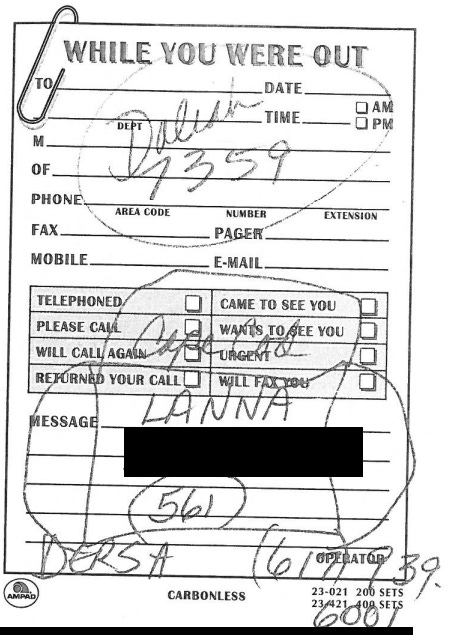 WHILE YOU WERE OUT
TO DATE
TIME AM
PM
DEPT
M
7359
OF
PHONE
AREA CODE NUMBER EXTENSION
FAX PAGER
MOBILE E-MAIL
TELEPHONED CAME TO SEE YOU
PLEASE CALL WANTS TO SEE YOU
Cape Cod
WILL CALL AGAIN URGENT
RETURNED YOUR CALL WILL FAX YOU
LANNA
MESSAGE
(561)
DERSA (617) 939.
OPERATOR
AMPAD CARBONLESS 23-021 200 SETS
23-421 400 SETS
6001